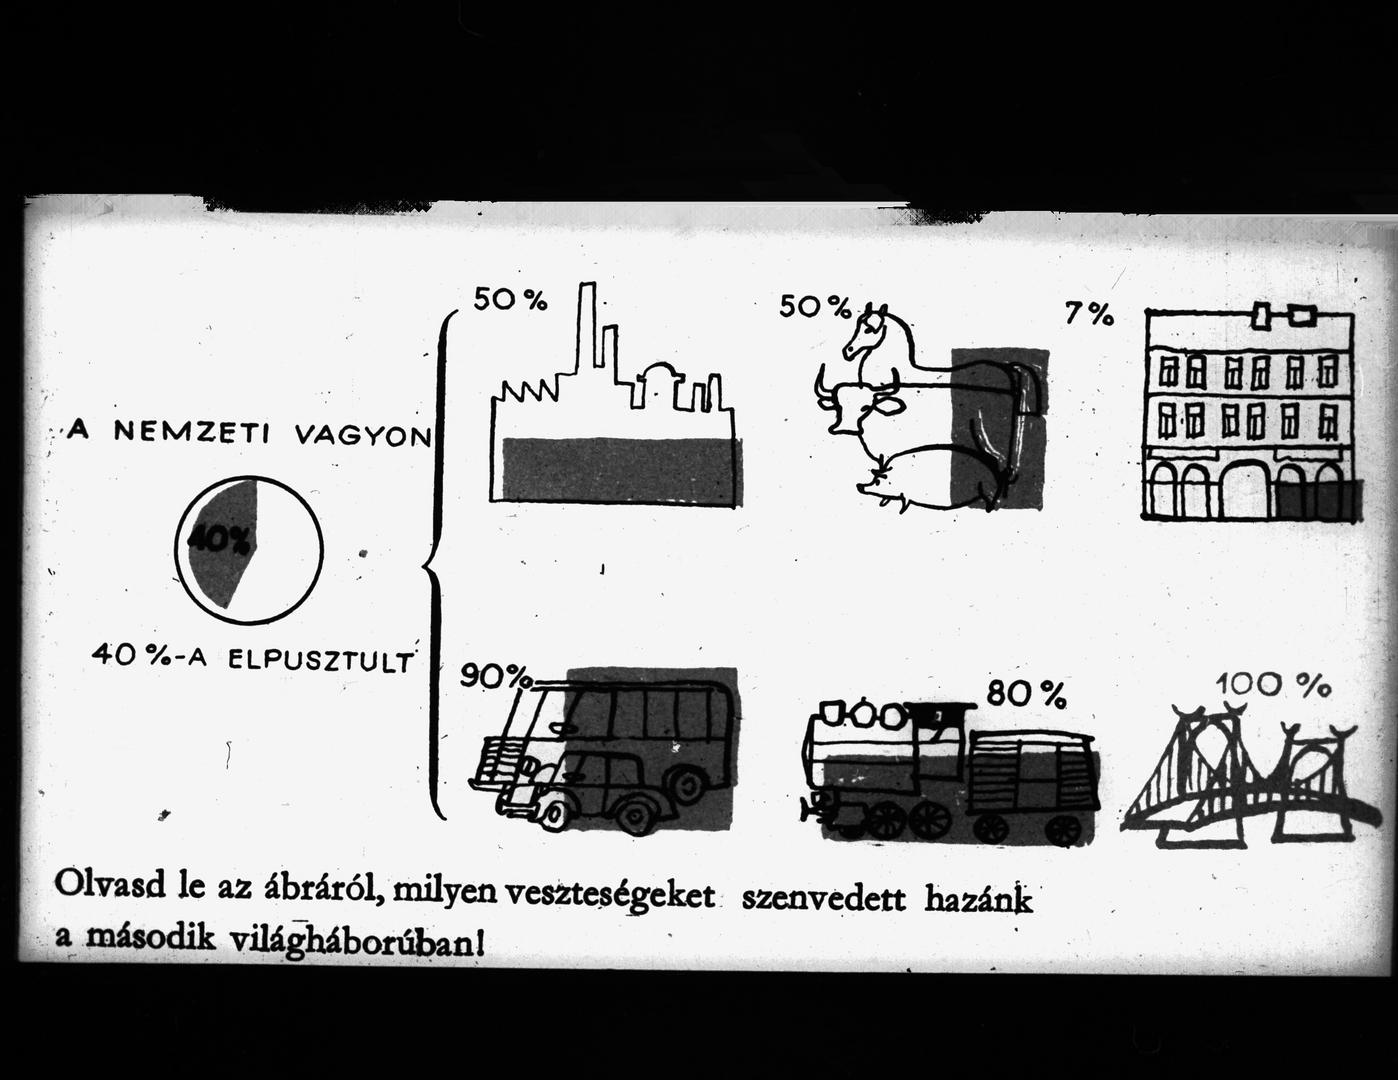 50%
50%
7%
A NEMZETI VAGYON
40%
40%-A ELPUSZTULT
90%
80%
100%
Olvasd le az ábráról, milyen veszteségeket szenvedett hazánk
a második világháborúban!